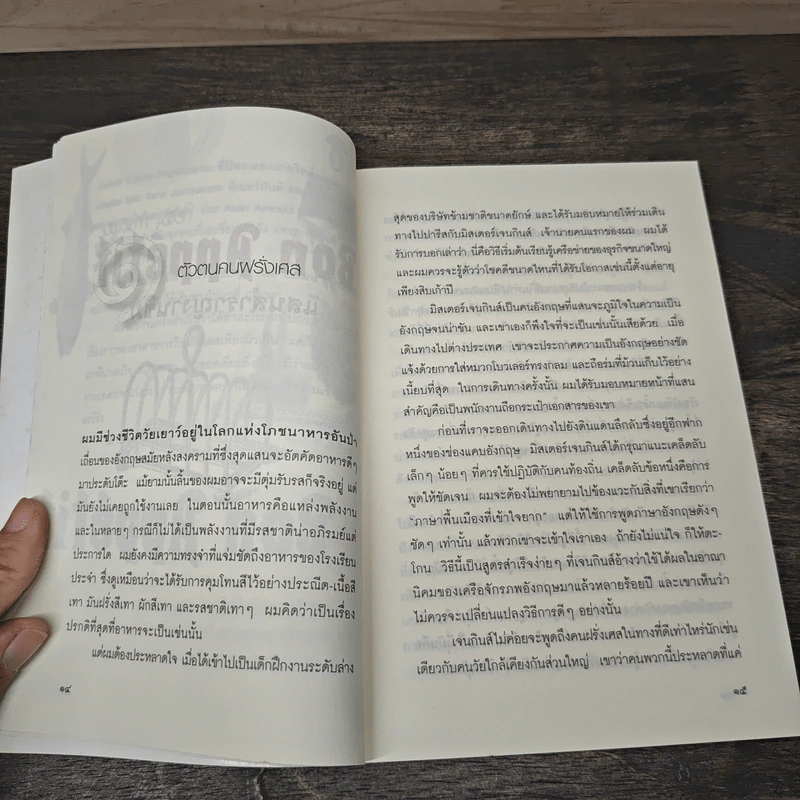 ๑
ตัวตนคนฝรั่งเศส
ผมมีช่วงชีวิตวัยเยาว์อยู่ในโลกแห่งโภชนาหารอันป่า
เถื่อนของอังกฤษสมัยหลังสงครามที่ซึ่งสุดแสนจะอัตคัดอาหารดีๆ
มาประดับโต๊ะ แม้ยามนั้นลิ้นของผมอาจจะมีตุ่มรับรสก็จริงอยู่ แต่
มันยังไม่เคยถูกใช้งานเลย ในตอนนั้นอาหารคือแหล่งพลังงาน
และในหลายๆ กรณีก็ไม่ได้เป็นพลังงานที่มีรสชาติน่าอภิรมย์แต่
ประการใด ผมยังคงมีความทรงจำที่แจ่มชัดถึงอาหารของโรงเรียน
ประจำ ซึ่งดูเหมือนว่าจะได้รับการคุมโทนสีไว้อย่างประณีต-เนื้อสี
เทา มันฝรั่งสีเทา ผักสีเทา และรสชาติเทาๆ ผมคิดว่าเป็นเรื่อง
ปรกติที่สุดที่อาหารจะเป็นเช่นนั้น
แต่ผมต้องประหลาดใจ เมื่อได้เข้าไปเป็นเด็กฝึกงานระดับล่าง
๑๔
สุดของบริษัทข้ามชาติขนาดยักษ์ และได้รับมอบหมายให้ร่วมเดิน
ทางไปปารีสกับมิสเตอร์เจนกินส์ เจ้านายคนแรกของผม ผมได้
รับการบอกเล่าว่า นี่คือวิธีเริ่มต้นเรียนรู้เครือข่ายของธุรกิจขนาดใหญ่
และผมควรจะรู้ตัวว่าโชคดีขนาดไหนที่ได้รับโอกาสเช่นนี้ตั้งแต่อายุ
เพียงสิบเก้าปี
มิสเตอร์เจนกินส์เป็นคนอังกฤษที่แสนจะภูมิใจในความเป็น
อังกฤษจนน่าขัน และเขาเองก็พึงใจที่จะเป็นเช่นนั้นเสียด้วย เมื่อ
เดินทางไปต่างประเทศ เขาจะประกาศความเป็นอังกฤษอย่างชัด
แจ้งด้วยการใส่หมวกโบวเลอร์ทรงกลม และถือร่มที่ม้วนเก็บไว้อย่าง
เนี้ยบที่สุด ในการเดินทางครั้งนั้น ผมได้รับมอบหมายหน้าที่แสน
สำคัญคือเป็นพนักงานถือกระเป๋าเอกสารของเขา
ก่อนที่เราจะออกเดินทางไปยังดินแดนลึกลับซึ่งอยู่อีกฟาก
หนึ่งของช่องแคบอังกฤษ มิสเตอร์เจนกินส์ได้กรุณาแนะเคล็ดลับ
เล็กๆ น้อยๆ ที่ควรใช้ปฏิบัติกับคนท้องถิ่น เคล็ดลับข้อหนึ่งคือการ
พูดให้ชัดเจน ผมจะต้องไม่พยายามไปข้องแวะกับสิ่งที่เขาเรียกว่า
"ภาษาพื้นเมืองที่เข้าใจยาก" แต่ให้ใช้การพูดภาษาอังกฤษดังๆ
ชัดๆ เท่านั้น แล้วพวกเขาจะเข้าใจเราเอง ถ้ายังไม่แน่ใจ ก็ให้ตะ-
โกน วิธีนี้เป็นสูตรสำเร็จง่ายๆ ที่เจนกินส์อ้างว่าใช้ได้ผลในอาณา
นิคมของเครือจักรภพอังกฤษมาแล้วหลายร้อยปี และเขาเห็นว่า
ไม่ควรจะเปลี่ยนแปลงวิธีการดีๆ อย่างนั้น
เจนกินส์ไม่ค่อยจะพูดถึงคนฝรั่งเศสในทางที่ดีเท่าไหร่นักเช่น
เดียวกับคนวัยใกล้เคียงกันส่วนใหญ่ เขาว่าคนพวกนี้ประหลาดที่แค่
๑๕